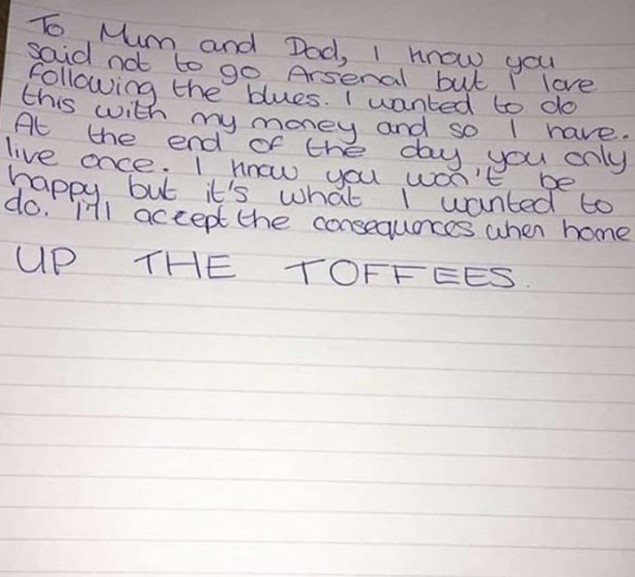 To Mum and Dad, I know you
said not to go Arsenal but I love
following the blues. I wanted to do
this with my money and so I have.
At the end of the day you only
live once. I know you won't be
happy but it's what I wanted to
do. I'll accept the consequences when home
UP THE TOFFEES.